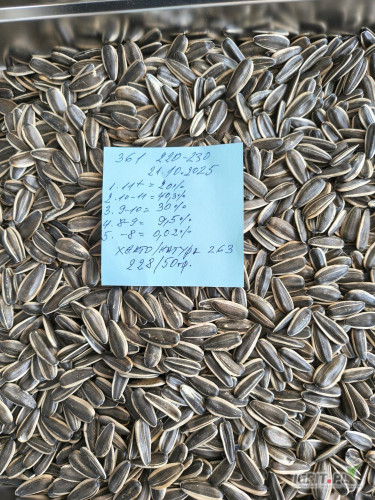 361 220-230
21.10.2025
1. 11+ = 20%
2. 10-11 = 40,3%
3. 9-10 = 30%
4. 8-9 = 9,5%
5. -8 = 0,02%
ХЕКТО/НАТУРА 263
228/50гр.